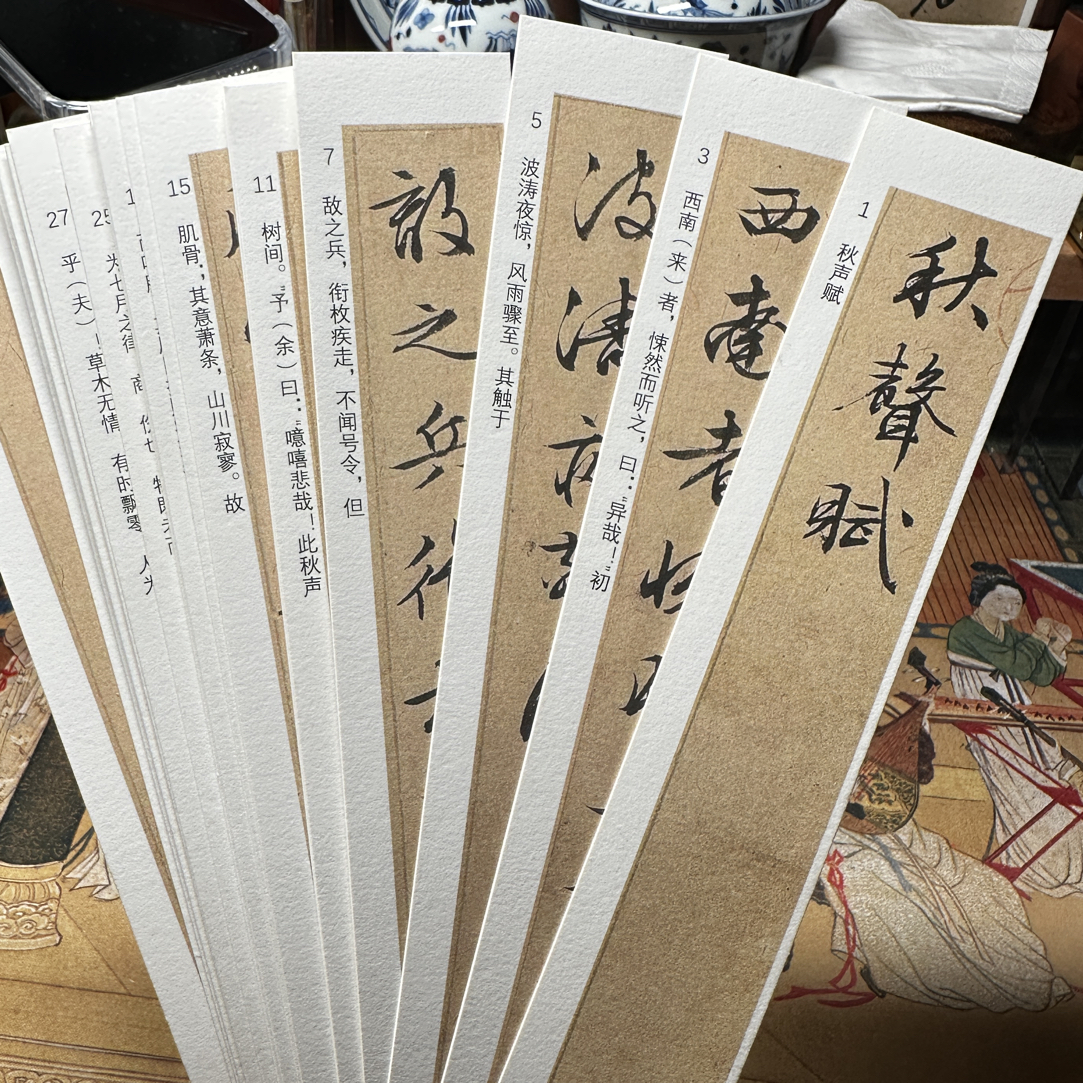 秋聲賦
1 秋声赋
西南者
3 西南（来）者，悚然而听之，曰：“异哉！”初
波濤夜
5 波涛夜惊，风雨骤至。其触于
敵之兵
7 敌之兵，衔枚疾走，不闻号令，但
11 树间。”予（余）曰：“噫嘻悲哉！此秋声
15 肌骨；其意萧条，山川寂寥。故
25 为七月之律
27 乎（夫）！草木无情 有时飘零 人为